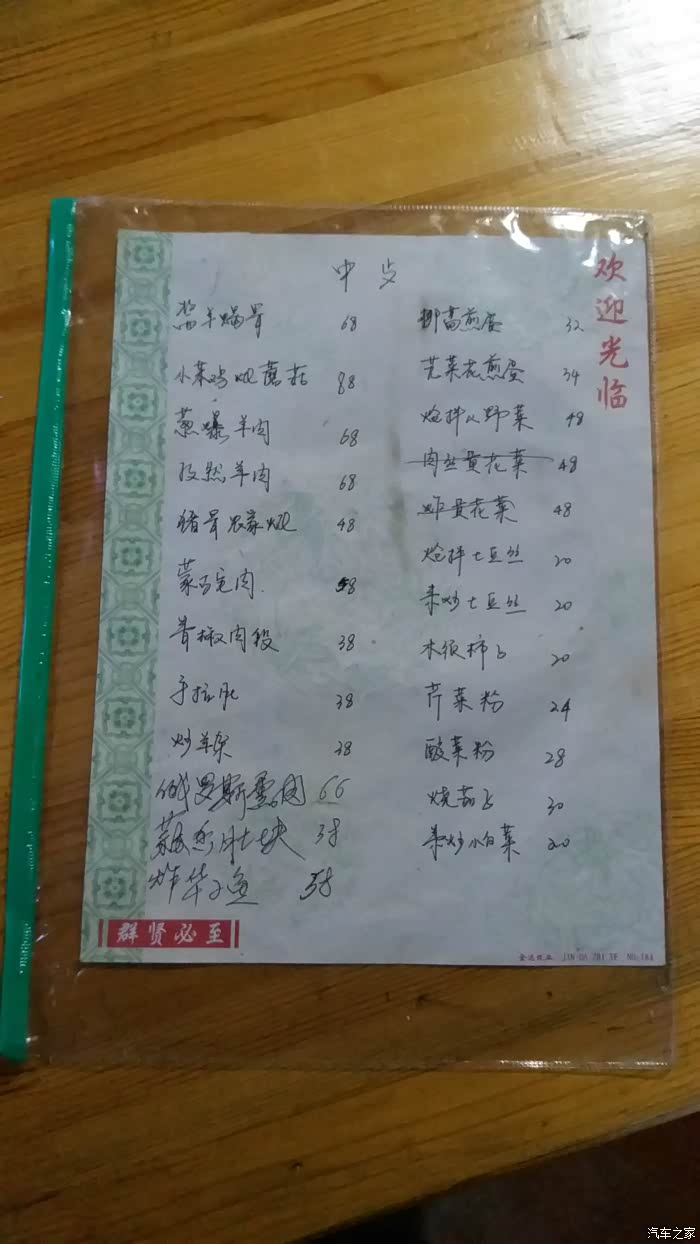 欢迎光临
中步
酱羊蝎骨 68
小笨鸡炖蘑菇 88
葱爆羊肉 68
孜然羊肉 68
猪骨农家炖 48
蒙古包肉 58
青椒肉段 38
手拉皮 38
炒羊杂 38
俄罗斯 66
38
炸华子鱼 38
柳蒿煎蛋 32
韭菜花煎蛋 34
炝拌山野菜 48
肉丝黄花菜 48
炸黄花菜 48
炝拌土豆丝 20
素炒土豆丝 20
木须柿子 20
芹菜粉 24
酸菜粉 28
烧茄子 30
素炒小白菜 20
群贤必至
金达纸业 JIN DA ZHI YE NO:184
汽车之家